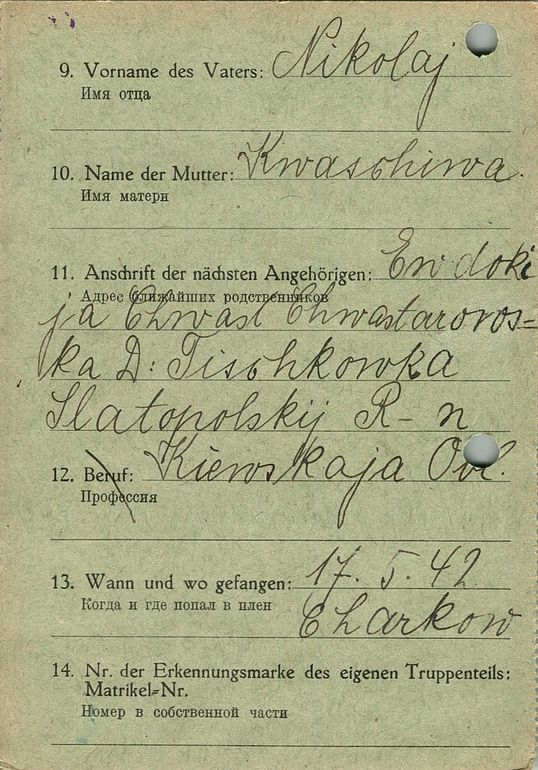 9. Vorname des Vaters: Nikolaj
Имя отца
10. Name der Mutter: Kwaschiwa.
Имя матери
11. Anschrift der nächsten Angehörigen: Ewdoki
Адрес ближайших родственников
ja Chwast Chwastarovos=
ka D: Tischkowka
Slatopolskij R-n
12. Beruf: Kiewskaja Obl.
Профессия
13. Wann und wo gefangen: 17. 5. 42
Когда и где попал в плен
Charkow
14. Nr. der Erkennungsmarke des eigenen Truppenteils:
Matrikel=Nr.
Номер в собственной части